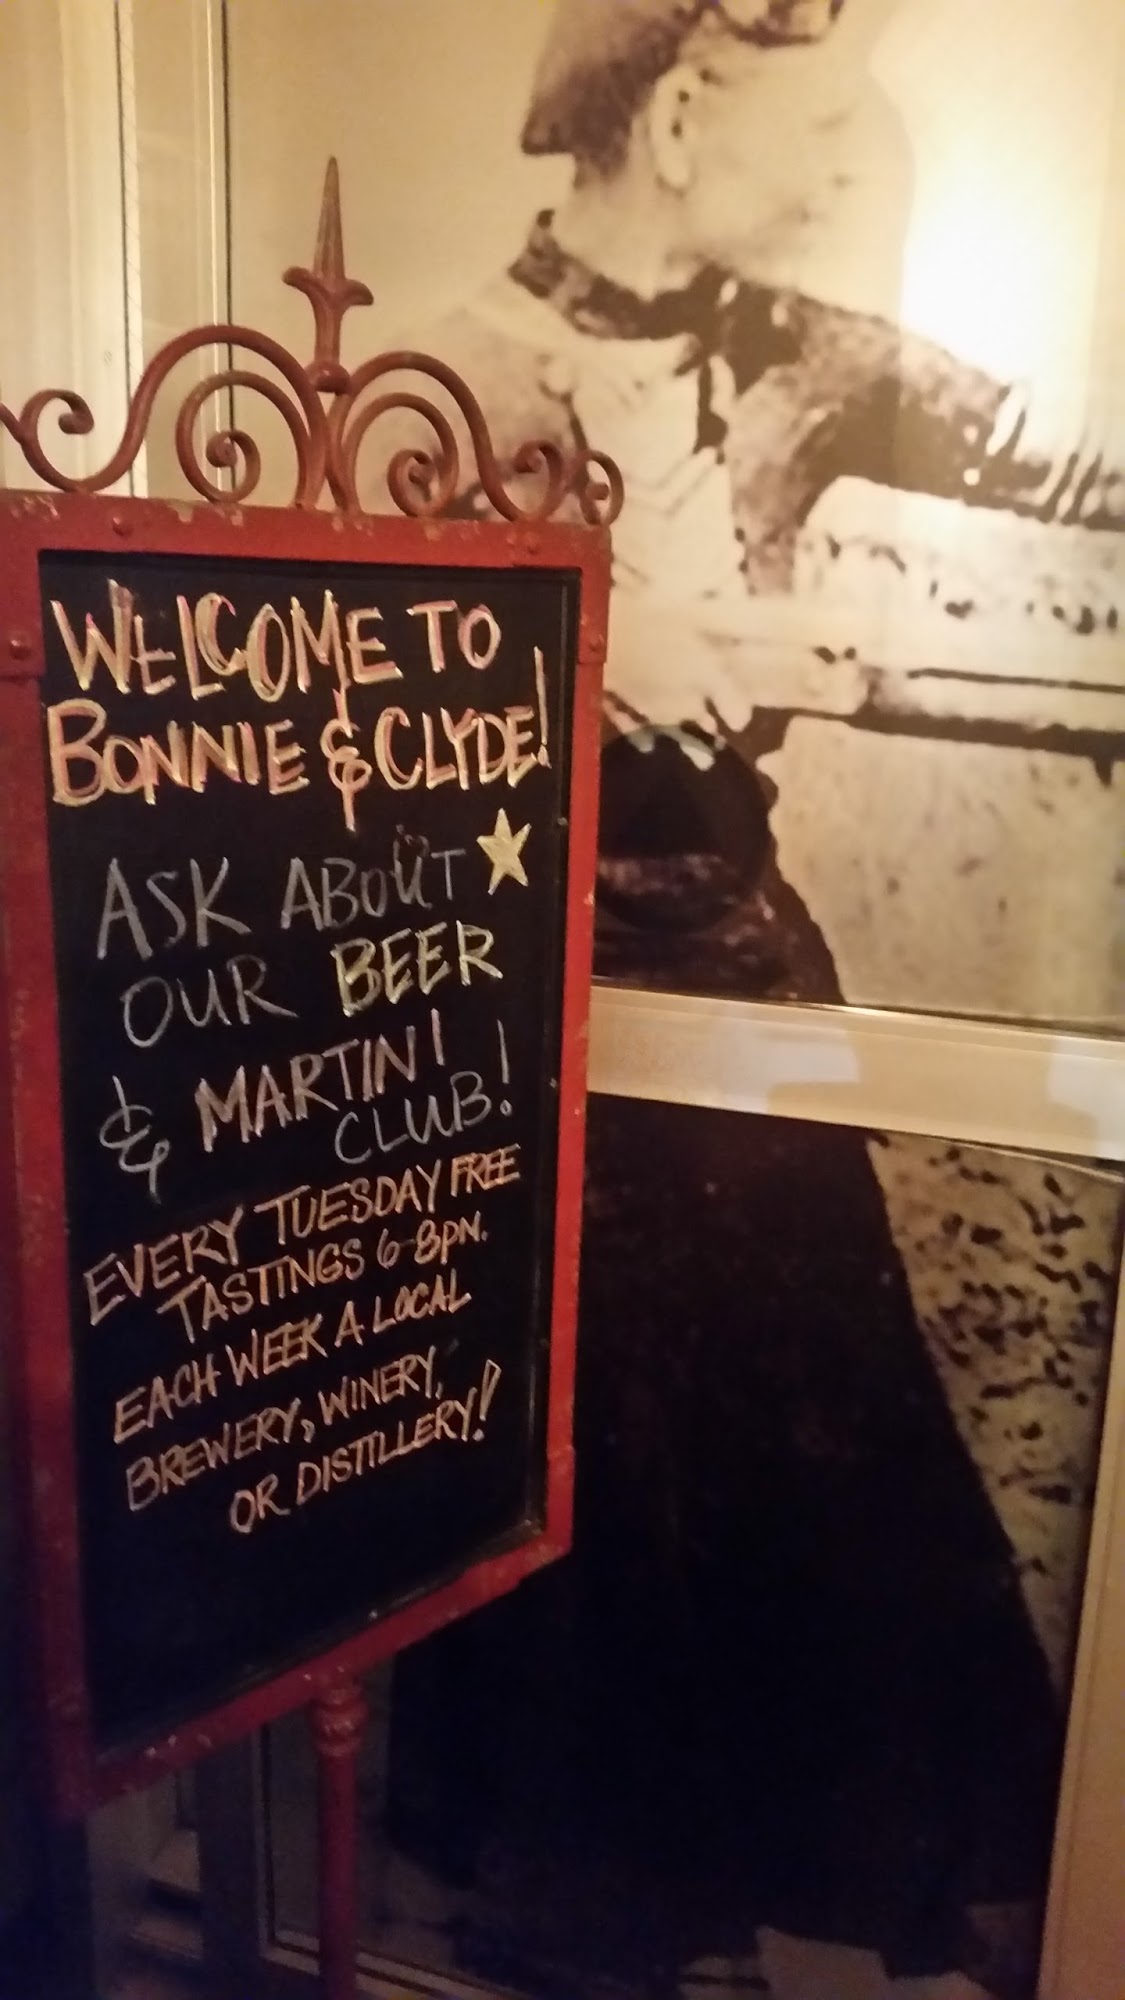 WELCOME TO
BONNIE & CLYDE!
ASK ABOUT
OUR BEER
& MARTINI
CLUB!
EVERY TUESDAY FREE
TASTINGS 6-8PM.
EACH WEEK A LOCAL
BREWERY, WINERY,
OR DISTILLERY!